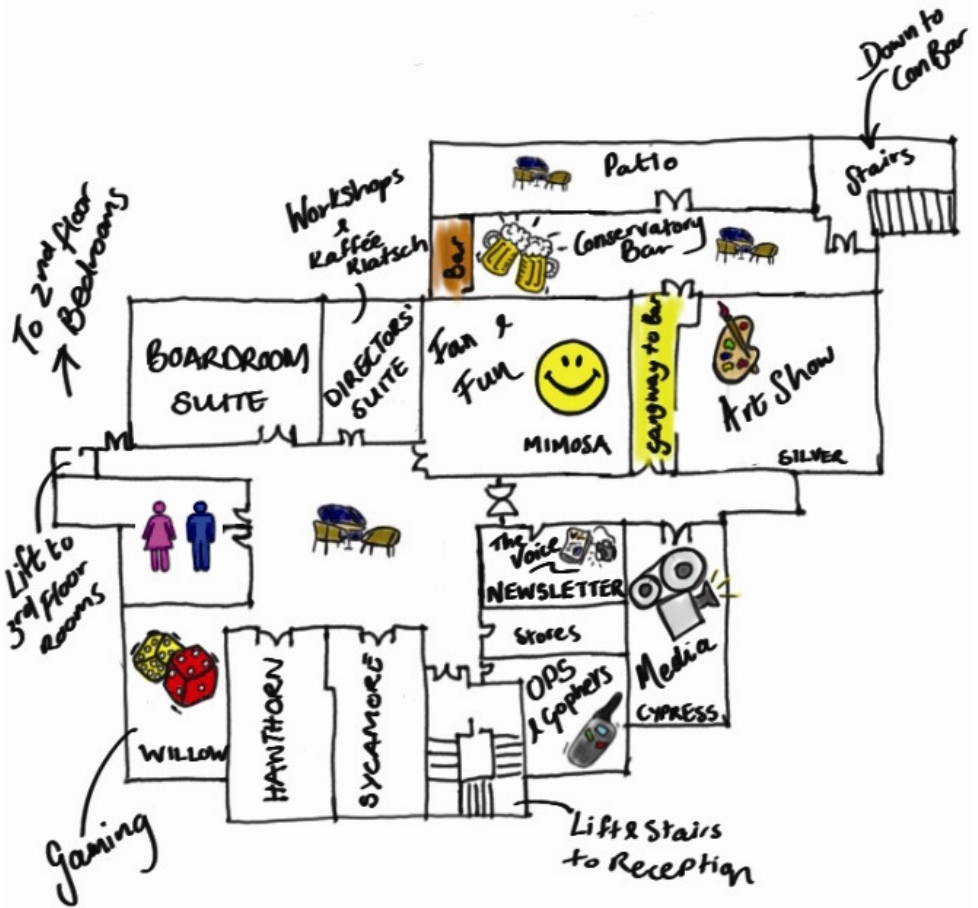 Down to
Con Bar
Patio
Stairs
Workshops
&
Kaffée
Klatsch
Bar
Conservatory
Bar
To 2nd floor
Bedrooms
BOARDROOM
SUITE
DIRECTORS'
SUITE
Fan &
Fun
MIMOSA
Gangway to Bar
Art Show
SILVER
Lift to
3rd floor
rooms
The
Voice
NEWSLETTER
Stores
OPS
& Gophers
Media
CYPRESS
WILLOW
HANTHORN
SYCAMORE
Gaming
Lift & Stairs
to Reception